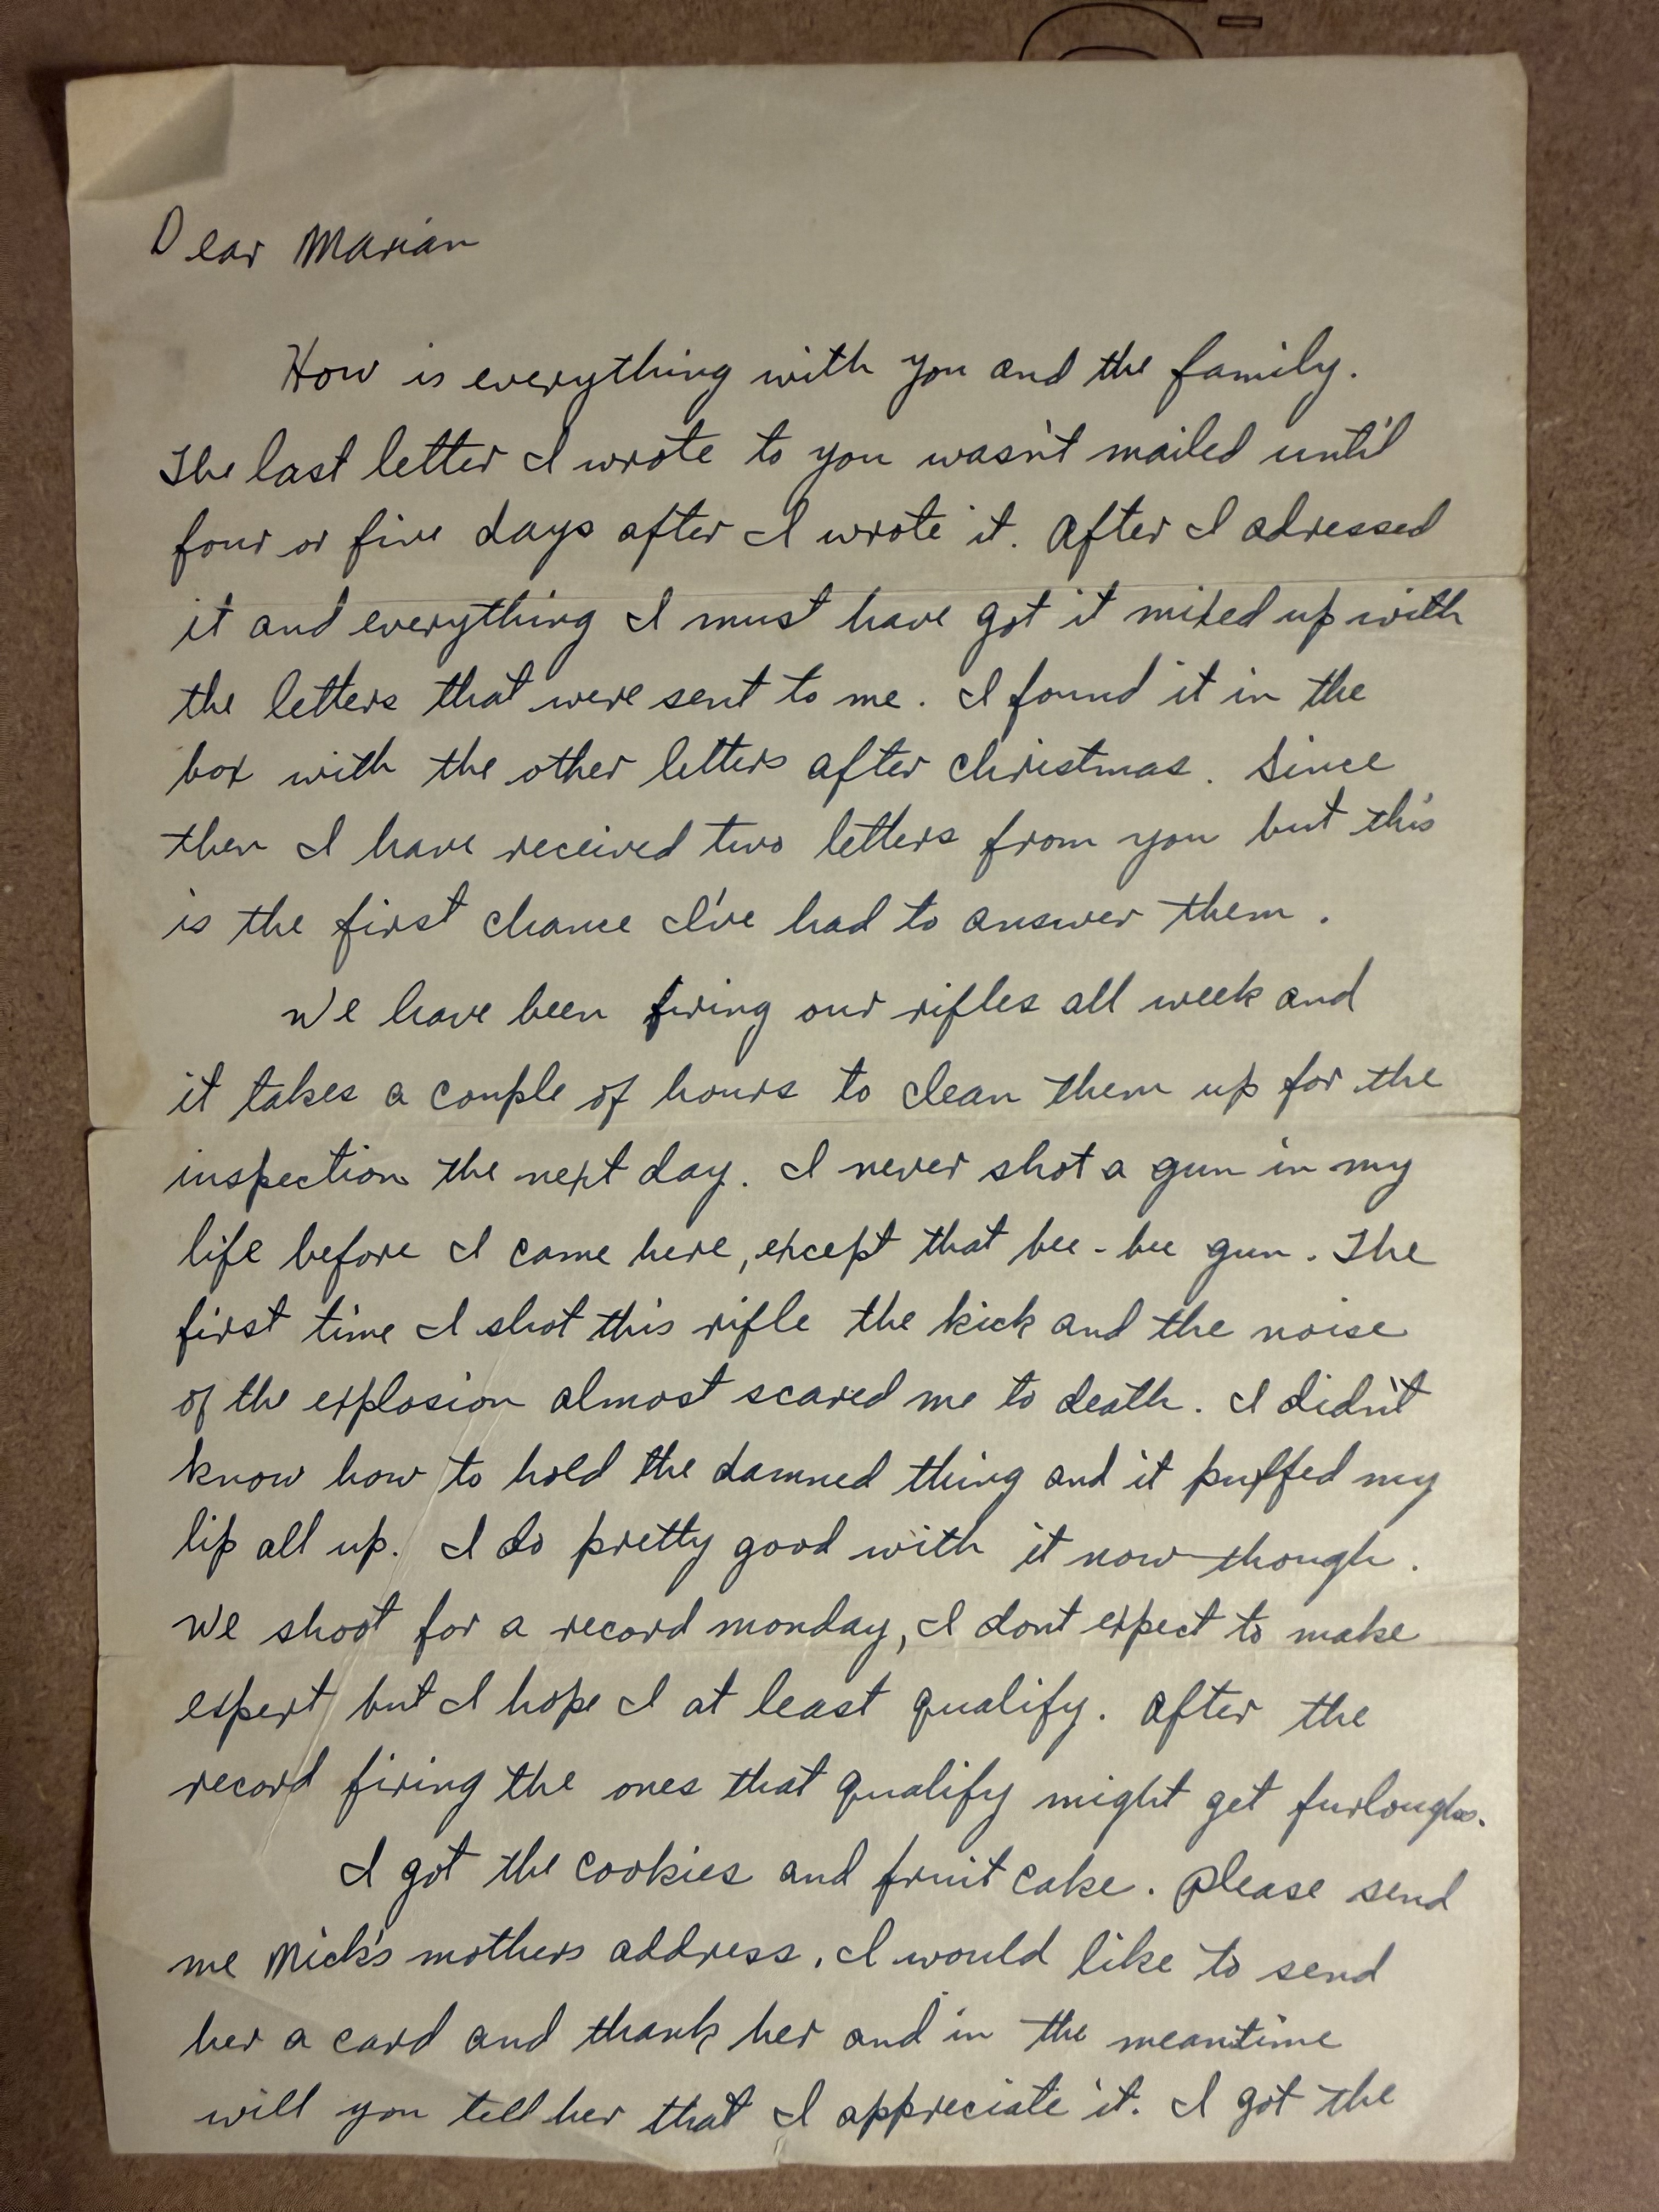 Dear Marian
How is everything with you and the family.
The last letter I wrote to you wasn't mailed until
four or five days after I wrote it. After I adressed
it and everything I must have got it mixed up with
the letters that were sent to me. I found it in the
box with the other letters after christmas. Since
then I have received two letters from you but this
is the first chance I've had to answer them.
We have been firing our rifles all week and
it takes a couple of hours to clean them up for the
inspection the next day. I never shot a gun in my
life before I came here, except that bee-bee gun. The
first time I shot this rifle the kick and the noise
of the explosion almost scared me to death. I didn't
know how to hold the damned thing and it puffed my
lip all up. I do pretty good with it now though.
We shoot for a record monday, I dont expect to make
expert but I hope I at least qualify. After the
record firing the ones that qualify might get furloughs.
I got the cookies and fruit cake. Please send
me Mick's mothers address. I would like to send
her a card and thank her and in the meantime
will you tell her that I appreciate it. I got the